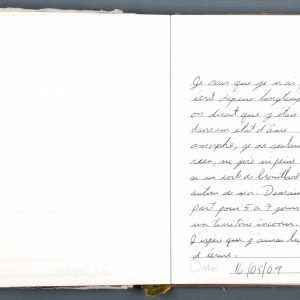 Je sais que je n'ai p
écrit depuis longtemp
on dirait que j'étais
dans un état d'âme
amorphe, je ne sentais
rien, ni joie ni peine
autour de moi. Demain
part pour 5 à 7 jours
un territoire inconnu.
J'espère que j'aurais
d'écrire.
Date: 16/05/09